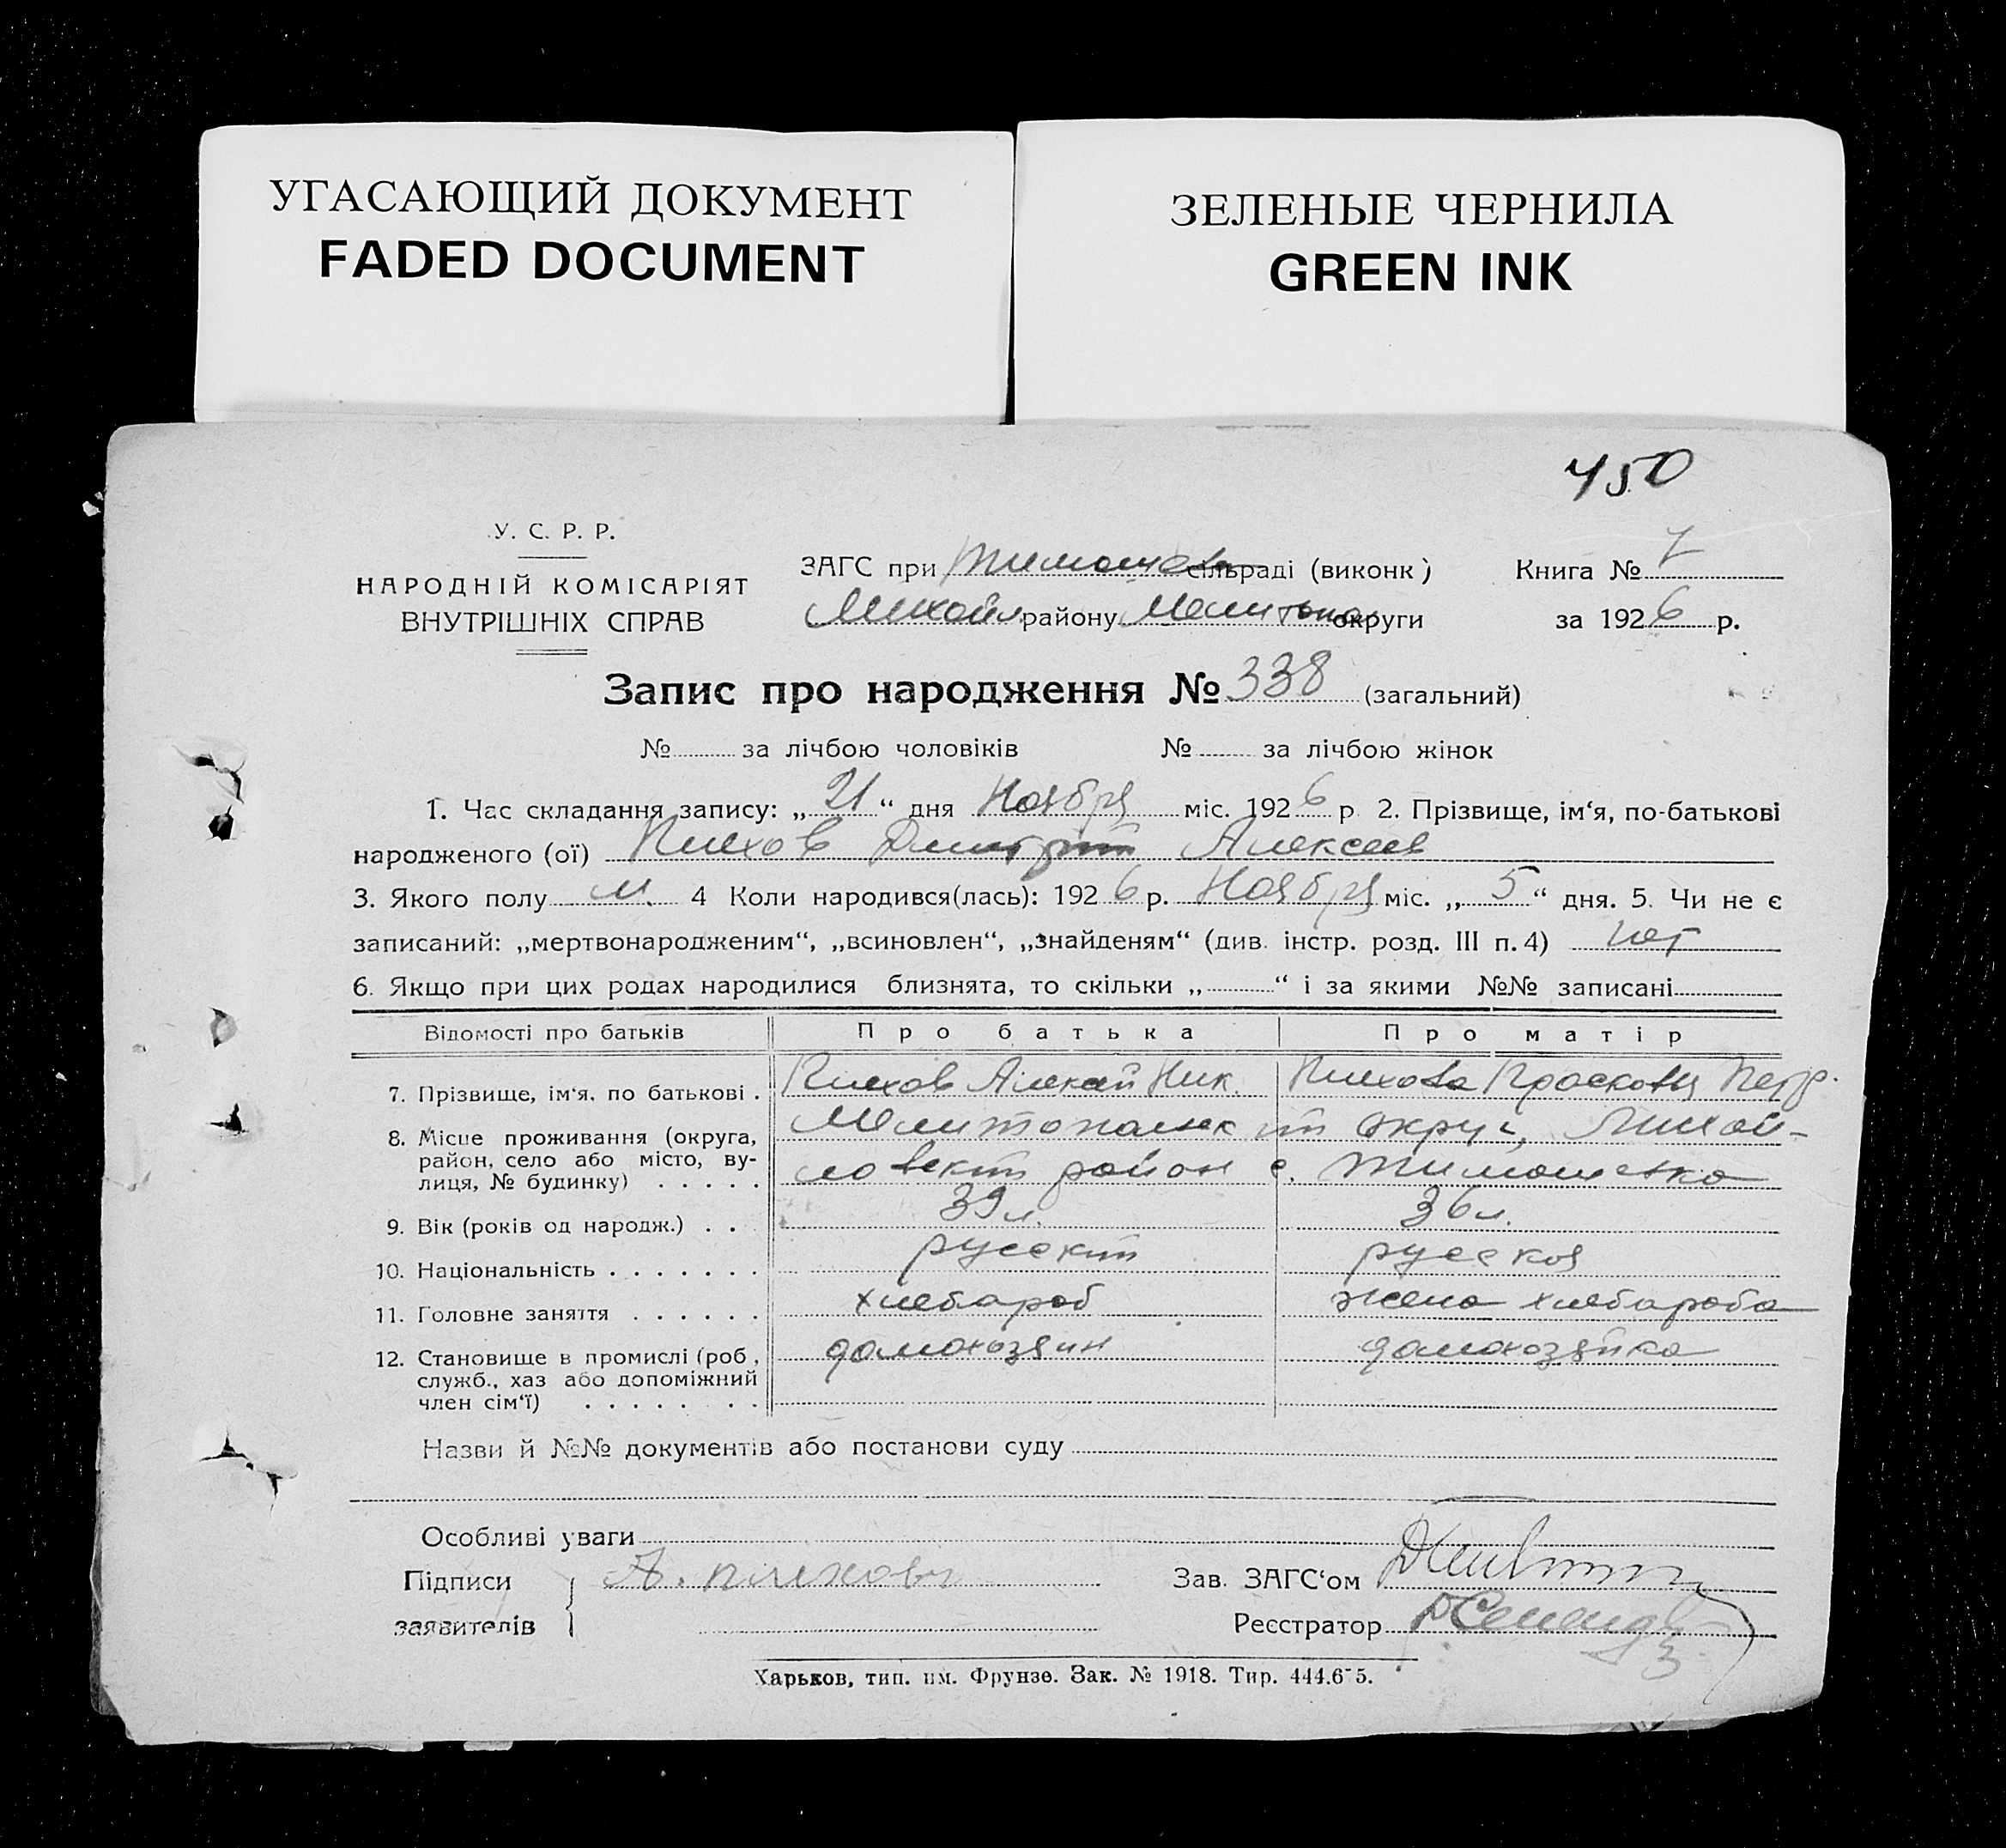 УГАСАЮЩИЙ ДОКУМЕНТ
FADED DOCUMENT
ЗЕЛЕНЫЕ ЧЕРНИЛА
GREEN INK
450
У. С. Р. Р.
НАРОДНІЙ КОМІСАРІЯТ
ВНУТРІШНІХ СПРАВ
ЗАГС при Тимошев сільраді (виконк)
Михайл району Мелитоп округи
Книга № 7
за 1926 р.
Запис про народження № 338 (загальний)
№ за лічбою чоловіків № за лічбою жінок
1. Час складання запису: „21“ дня Ноября міс. 1926 р 2. Прізвище, ім‘я, по-батькові
народженого (ої) Плехов Дмитрий Алексеев
3. Якого полу м. 4 Коли народився(лась): 1926 р. Ноября міс. „5“ дня. 5. Чи не є
записаний: „мертвонародженим“, „всиновлен“, „знайденям“ (див. інстр. розд. III п. 4) нет
6. Якщо при цих родах народилися близнята, то скільки „ “ і за якими №№ записані
Відомості про батьків Про батька Про матір
7. Прізвище, ім‘я, по батькові . Плехов Алексей Ник. Плехова Прасковья Петр.
8. Місце проживання (округа, район, село або місто, вулиця, № будинку) . . . . . Мелитопольск ий округ, Михай-
ловский район с. Тимошевка
9. Вік (років од народж.) . . 39 л. 36 л.
10. Національність . . . . . . . русский русская
11. Головне заняття . . . . . . хлебароб жена хлебароба
12. Становище в промислі (роб, служб., хаз або допоміжний член сім‘ї) . . . . . . . домохозяин домохозяйка
Назви й №№ документів або постанови суду
Особливі уваги
Підписи заявителів А. плехов
Зав. ЗАГС‘ом
Реєстратор
Харьков, тип. им. Фрунзе. Зак. № 1918. Тир. 444.6 5.